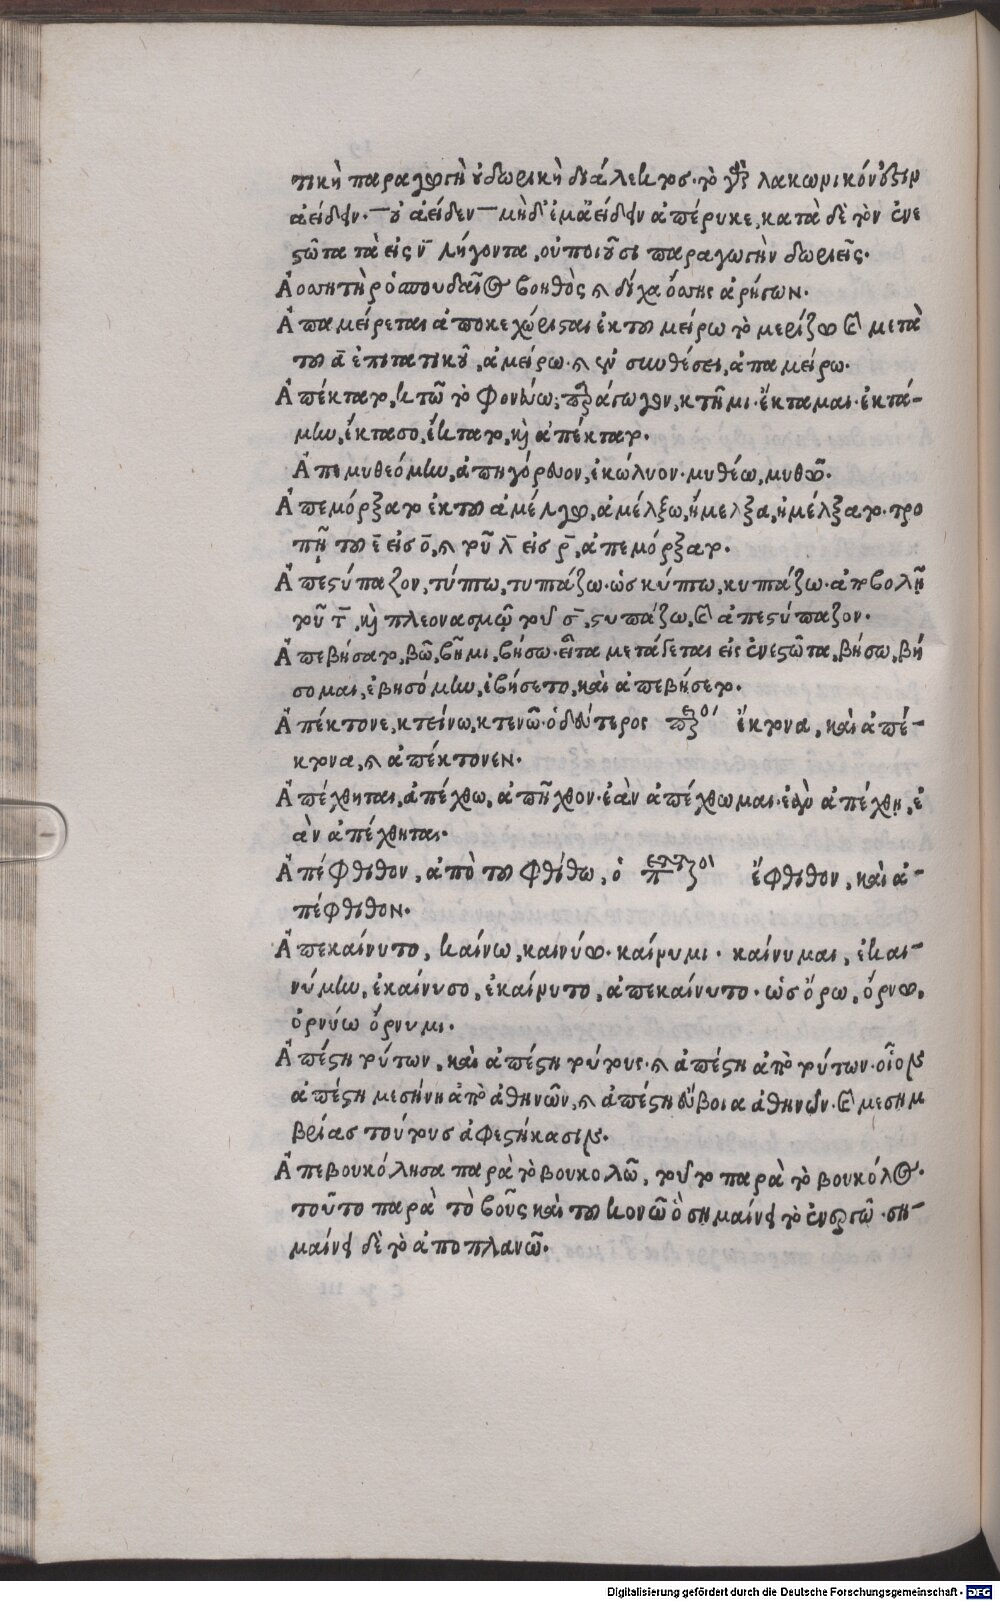 τικὴ παραγωγὴ ἡ δωρικὴ διάλεκτος. τὸ γὰρ λακωνικόν ἐστιν
ἀείδην. οὐ ἀείδεν μὴ δ' ἐμὰ ἀείδην ἀπέρυκε, κατὰ δὲ τὸν ἐνε
στῶτα τὰ εἰς ν̄ λήγοντα, οὐ ποιοῦσι παραγωγὴν δωριεῖς.
Ἀοσητὴρ ὁ σπουδαῖος βοηθὸς καὶ δίχα ὄσσης ἀρήγων.
Ἀπαμείρεται ἀποκεχώρισται ἐκ τοῦ μείρω τὸ μερίζω καὶ μετὰ
τοῦ ᾱ ἐπιτατικοῦ, ἀμείρω. καὶ ἐν συνθέσει, ἀπαμείρω.
Ἀπέκτατο, κτῶ τὸ φονεύω, παράγωγον, κτῆμι. ἔκταμαι. ἐκτά-
μην, ἔκτασο, ἔκτατο, καὶ ἀπέκτατο.
Ἀπεμυθεόμην, ἀπηγόρευον, ἐκώλυον. μυθέω, μυθῶ.
Ἀπεμόρξατο ἐκ τοῦ ἀμέλγω, ἀμέλξω, ἤμελξα, ἠμέλξατο. τρο
πῇ τοῦ ε̄ εἰς ο̄, καὶ τοῦ λ̄ εἰς ρ̄, ἀπεμόρξατο.
Ἀπεστύπαζον, τύπτω, τυπτάζω. ὡς κύπτω, κυπτάζω. ἀποβολῇ
τοῦ τ̄, καὶ πλεονασμῷ τοῦ σ̄, στυπάζω, καὶ ἀπεστύπαζον.
Ἀπεβήσατο, βῶ, βῆμι, βήσω. εἶτα μετάγεται εἰς ἐνεστῶτα, βήσω, βή
σομαι, ἐβησόμην, ἐβήσετο, καὶ ἀπεβήσετο.
Ἀπέκτονε, κτείνω, κτενῶ. ὁ δεύτερος ἔκτονα, καὶ ἀπέ-
κτονα, καὶ ἀπέκτονεν.
Ἀπέχθηται, ἀπέχθω, ἀπῆχθον. ἐὰν ἀπέχθωμαι. ἐὰν ἀπέχθῃ, ἐ
ὰν ἀπέχθηται.
Ἀπέφθιθον, ἀπὸ τοῦ φθίθω, ὁ ἔφθιθον, καὶ ἀ-
πέφθιθον.
Ἀπεκαίνυτο, καίνω, καινύω. καίνυμι. καίνυμαι, ἐκαι-
νύμην, ἐκαίνυσο, ἐκαίνυτο, ἀπεκαίνυτο. ὡς ὄρω, ὄρνω,
ὀρνύω ὄρνυμι.
Ἀπέστη τούτων, καὶ ἀπέστη τούτους. καὶ ἀπέστη ἀπὸ τούτων. οἷον
ἀπέστη μεσήνη ἀπὸ ἀθηνῶν, καὶ ἀπέστη εὔβοια ἀθηνῶν. καὶ μεσημ
βρίας τούτους ἀφεστήκασιν.
Ἀπεβουκόλησα παρὰ τὸ βουκολῶ, τοῦτο παρὰ τὸ βουκόλος.
τοῦτο παρὰ τὸ βοῦς καὶ τοῦ κονῶ ὃ σημαίνει τὸ ἐνεργῶ. ση-
μαίνει δὲ τὸ ἀποπλανῶ.
Digitalisierung gefördert durch die Deutsche Forschungsgemeinschaft - DFG